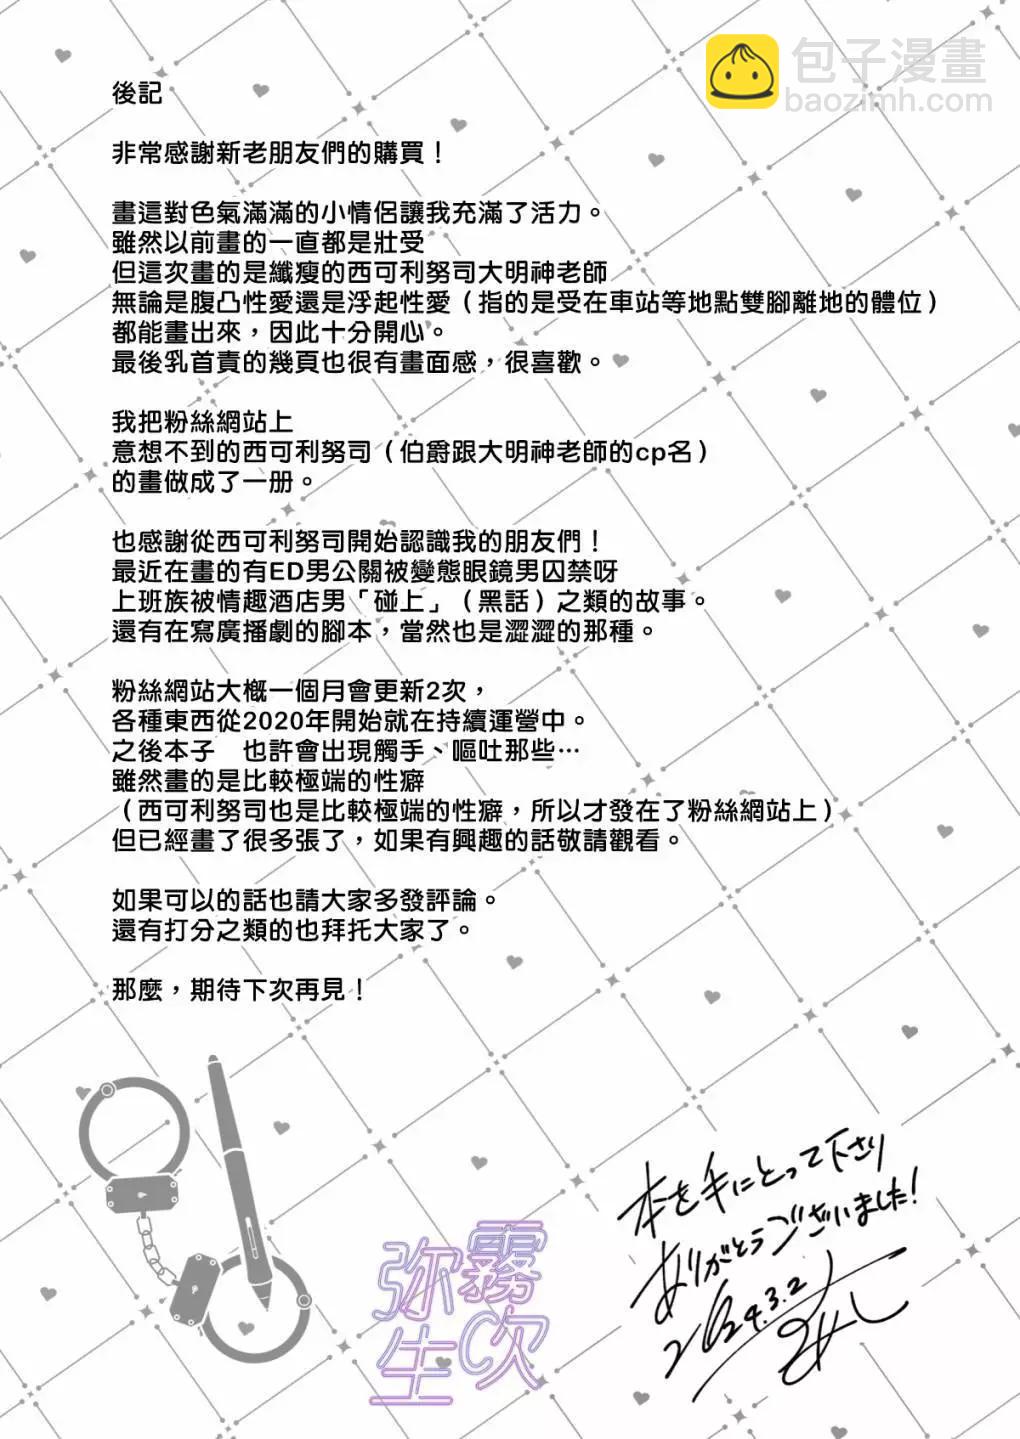 包子漫畫
baozimh.com
後記
非常感謝新老朋友們的購買！
畫這對色氣滿滿的小情侶讓我充滿了活力。
雖然以前畫的一直都是壯受
但這次畫的是纖瘦的西可利努司大明神老師
無論是腹凸性愛還是浮起性愛（指的是受在車站等地點雙腳離地的體位）
都能畫出來，因此十分開心。
最後乳首責的幾頁也很有畫面感，很喜歡。
我把粉絲網站上
意想不到的西可利努司（伯爵跟大明神老師的cp名）
的畫做成了一册。
也感謝從西可利努司開始認識我的朋友們！
最近在畫的有ED男公關被變態眼鏡男囚禁呀
上班族被情趣酒店男「碰上」（黑話）之類的故事。
還有在寫廣播劇的腳本，當然也是澀澀的那種。
粉絲網站大概一個月會更新2次，
各種東西從2020年開始就在持續運營中。
之後本子　也許會出現觸手、嘔吐那些…
雖然畫的是比較極端的性癖
（西可利努司也是比較極端的性癖，所以才發在了粉絲網站上）
但已經畫了很多張了，如果有興趣的話敬請觀看。
如果可以的話也請大家多發評論。
還有打分之類的也拜托大家了。
那麼，期待下次再見！
本を手にとって下さり
ありがとうございました！
2024.3.2
霧次
弥生